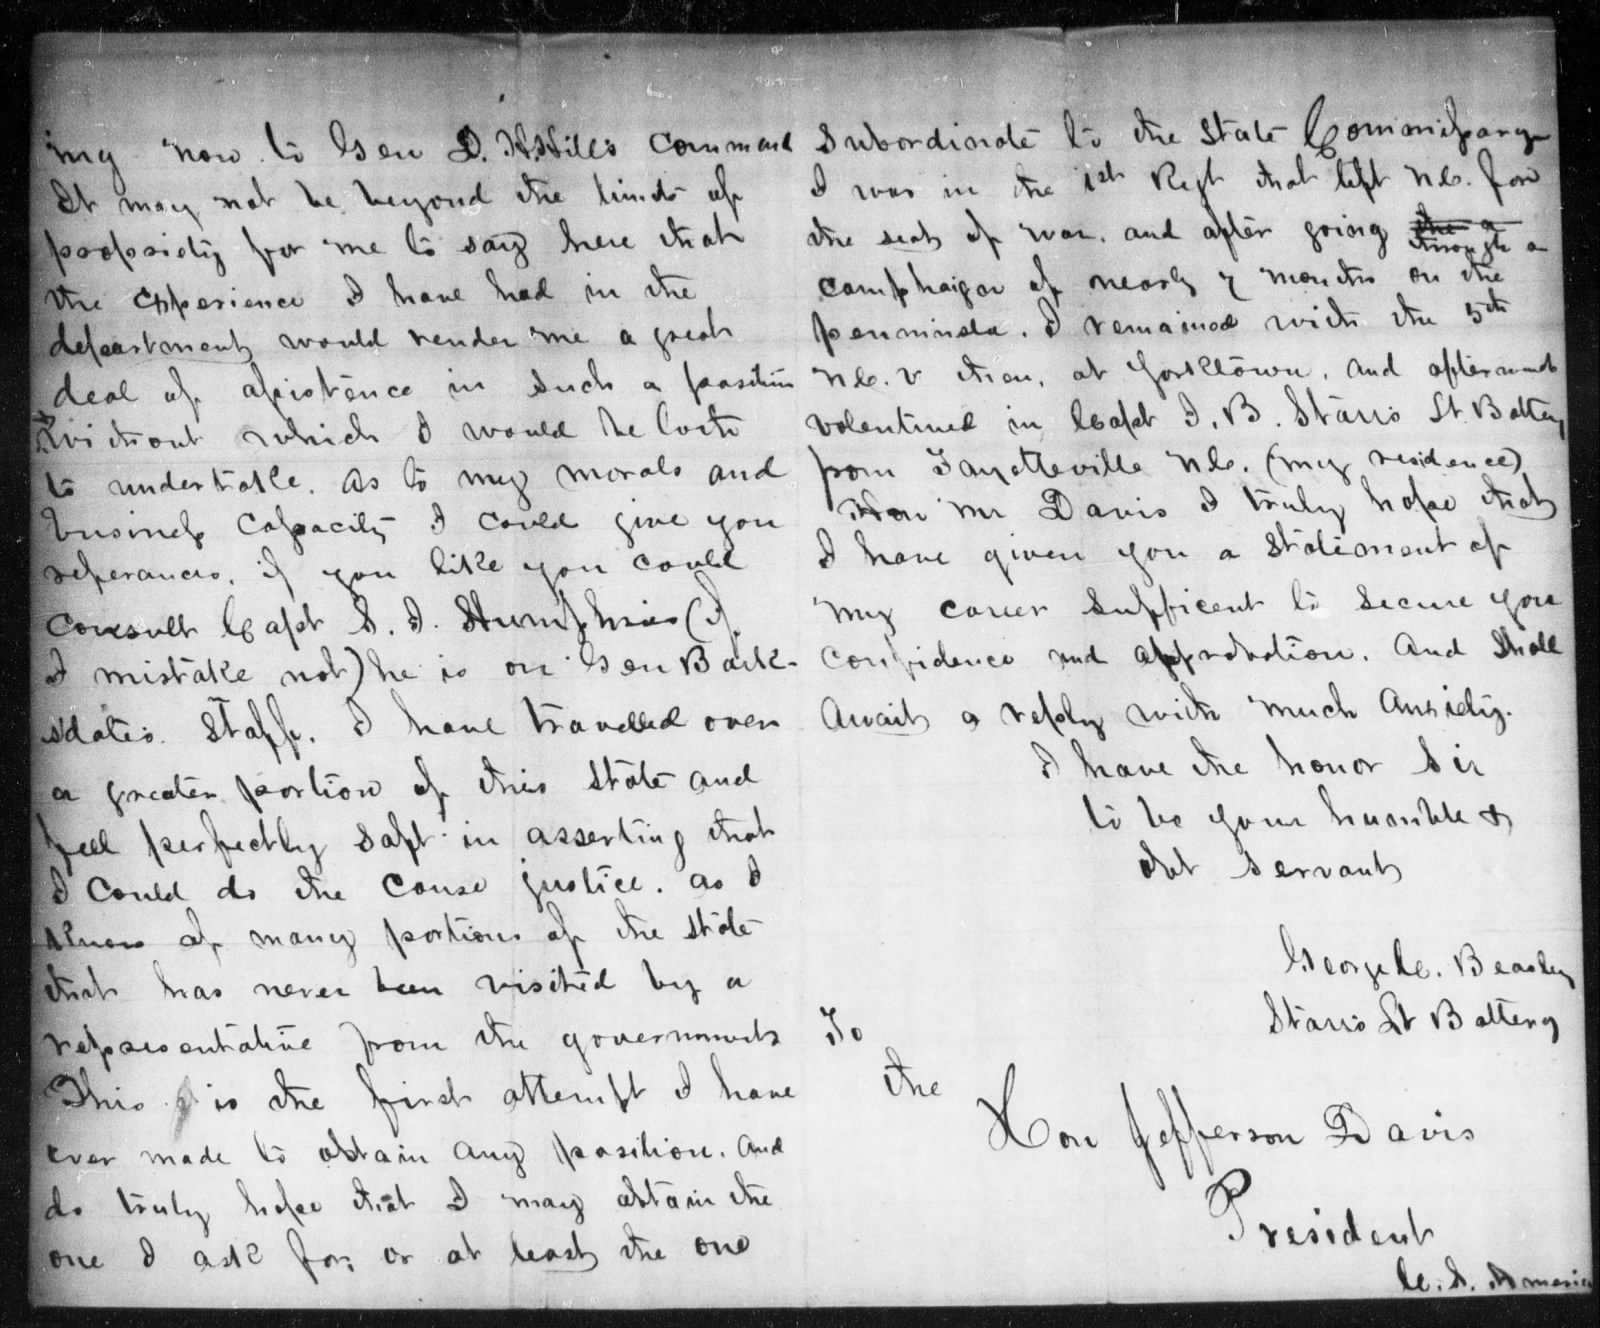 ing now to Gen D. H. Hill's Command
It may not be beyond the limits of
propriety for me to say here that
the experience I have had in the
department would render me a great
deal of assistence in such a position
without which I would be loth
to undertake. as to my morals and
business capacity I could give you
referances. if you like you could
consult Capt S. I. Humphries (if
I mistake not) he is on Gen Bark-
sdale's Staff. I have travelled over
a greater portion of this State and
feel perfectly saft in asserting that
I could do the cause justice. as I
know of many portions of the State
that has never been visited by a
representative from the governments
This is the first attempt I have
ever made to obtain any position. and
do truly hope that I may obtain the
one I ask for, or at least the one
Subordinate to the State Commissary
I was in the 1st Regt that left N.C. for
the seat of war. and after going the a
through a
camphaign of nearly 7 months on the
penninsla. I remained with the 5th
N.C. V then, at Yorktown, and afterwards
volentined in Capt J. B. Starrs Lt Battery
from Fayetteville N.C. (my residence)
Now Mr Davis I truly hope that
I have given you a statement of
my career sufficent to secure you
confidence and approbation. and shall
await a reply with much anxiety.
I have the honor Sir
to be your humble &
obt servant
George C. Beasley
Starrs Lt Battery
To
the
Hon Jefferson Davis
President
C. S. America